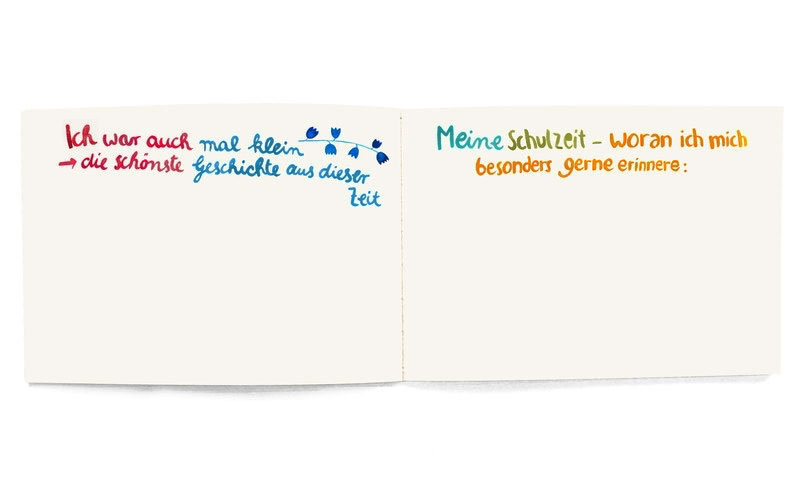 Ich war auch mal klein
→ die schönste Geschichte aus dieser
Zeit
Meine Schulzeit – woran ich mich
besonders gerne erinnere: